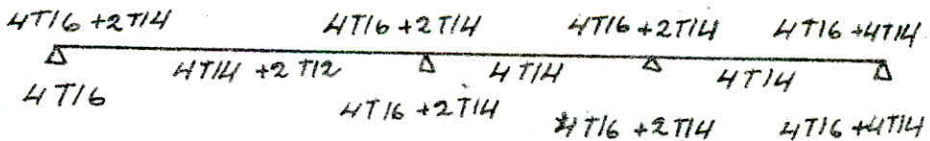 4T16 + 2T14 4T16 + 2T14 4T16 + 2T14 4T16 + 4T14
4T14 + 2T12 4T14 4T14
4T16 4T16 + 2T14 4T16 + 2T14 4T16 + 4T14